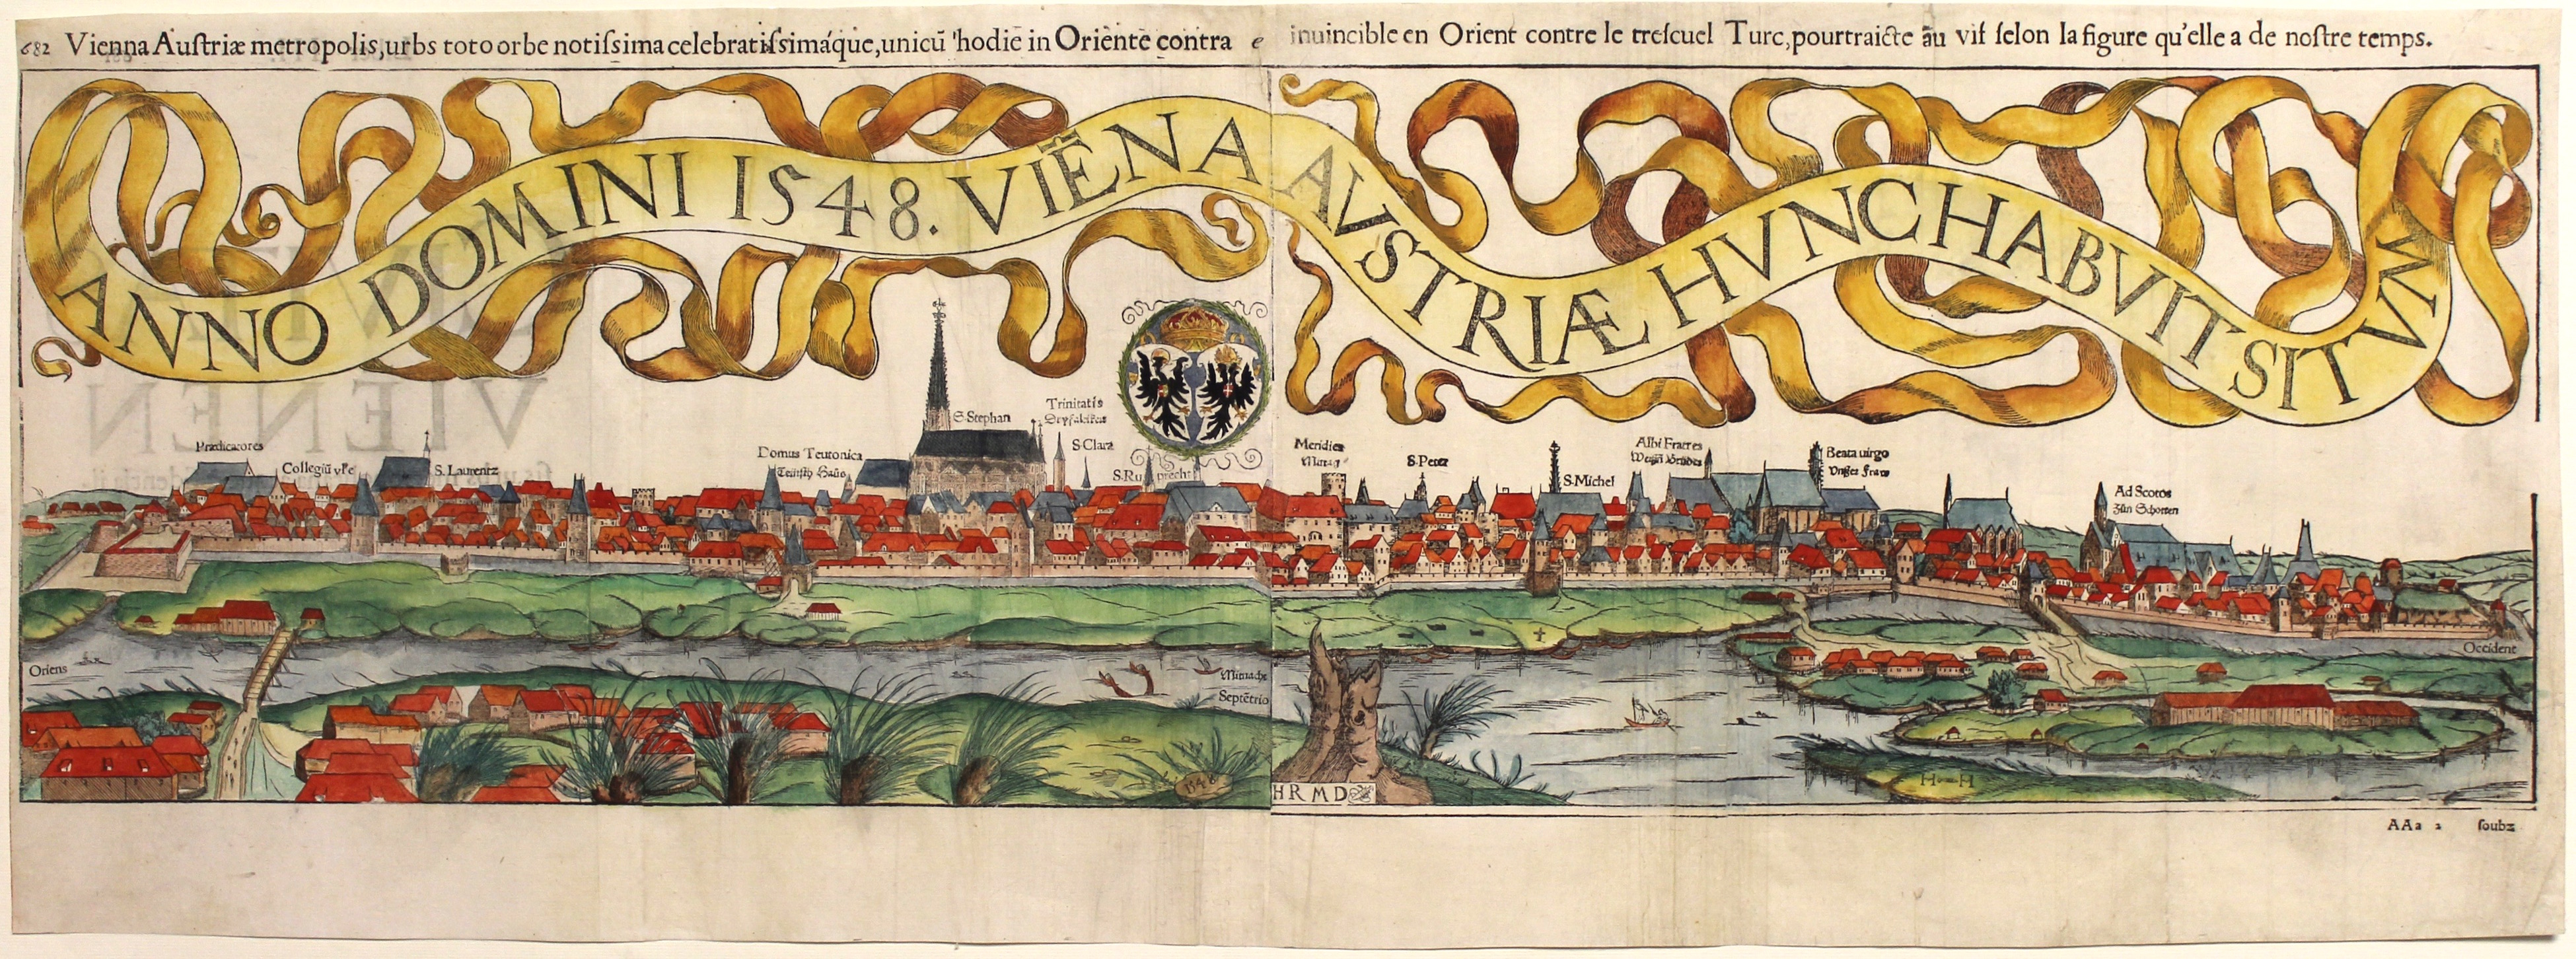 682 Vienna Auſtriæ metropolis, urbs toto orbe notiſsima celebratiſsimáque, unicũ 'hodiē in Oriēnte contra e inuincible en Orient contre le treſcuel Turc, pourtraicte au vif ſelon la figure qu'elle a de noſtre temps.
ANNO DOMINI 1548. VIĒNA AVSTRIÆ HVNC HABVIT SITVM
Prædicatores
Collegiũ
S. Laurentz
Domus Teutonica
Teutſch Haũs
S. Stephan
Trinitatis
S. Clara
S. Ruprecht
Meridies
Mittag
S. Peter
S. Michel
Albi Fratres
Beata uirgo
Vnſer fraw
Ad Scotos
Zũn Schotten
Oriens
Mitnacht
Septētrio
Occident
1548
HRMD
H H
AAa 2 ſoubz